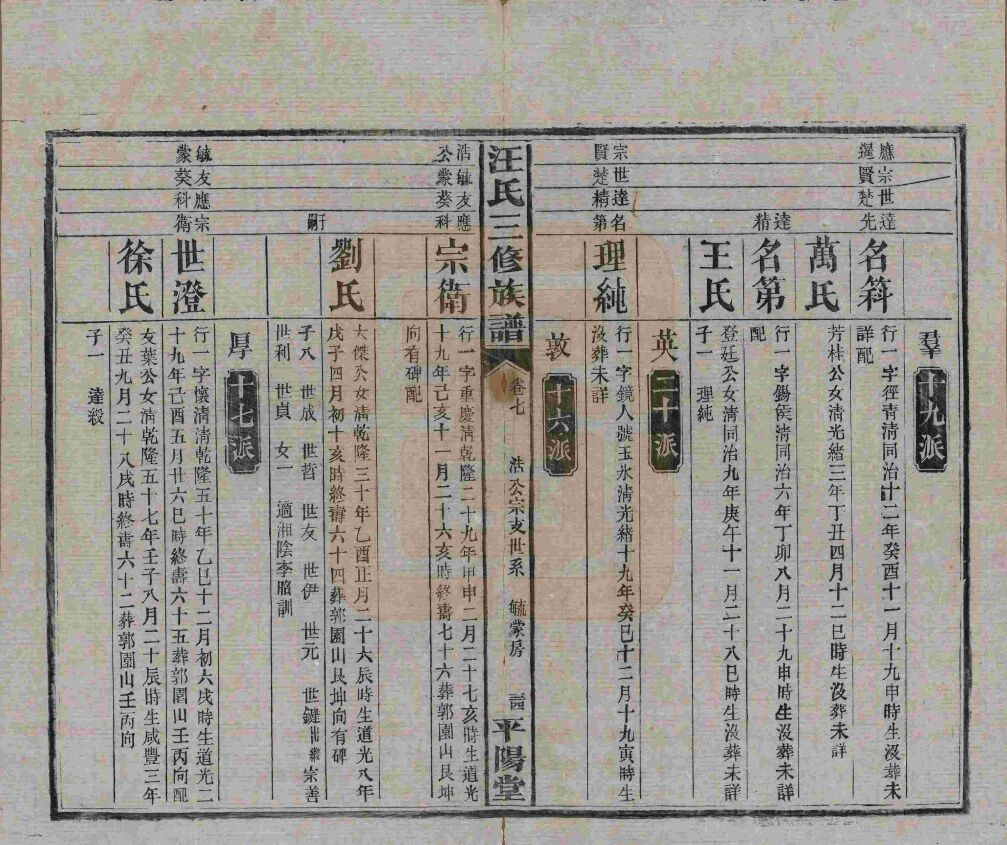 羣 十九派
應宗世達
暹賢楚先
名科
行一字徑青清同治十二年癸酉十一月十九申時生沒葬未
詳配
萬氏
芳桂公女清光緒三年丁丑四月十二巳時生沒葬未詳
達
精
名第
行一字錫侯清同治六年丁卯八月二十九申時生沒葬未詳
配
王氏
登廷公女清同治九年庚午十一月二十八巳時生沒葬未詳
子一 理純
英 二十派
宗世達名
賢楚精第
理純
行一字鏡人號玉氷清光緒十九年癸巳十二月十九寅時生
沒葬未詳
敦 十六派
汪氏三修族譜 卷七 浩公宗支世系 毓蒙房 平陽堂
浩毓友應
公蒙葵科
宗衛
行一字重慶清乾隆二十九年甲申二月二十七亥時生道光
十九年己亥十一月二十六亥時終壽七十六葬郭園山艮坤
向有碑配
劉氏
大傑公女清乾隆三十年乙酉正月二十六辰時生道光八年
戊子四月初十亥時終壽六十四葬郭園山艮坤向有碑
子八 世成 世哲 世友 世伊 世元 世鍵出繼宗善
世利 世貞 女一 適湘陰李貽訓
厚 十七派
毓友應宗
蒙葵科衛
世澄
行一字懷清清乾隆五十年乙巳十二月初六戌時生道光二
十九年己酉五月廿六巳時終壽六十五葬郭園山壬丙向配
徐氏
友葉公女清乾隆五十七年壬子八月二十辰時生咸豐三年
癸丑九月二十八戌時終壽六十二葬郭園山壬丙向
子一 達殺